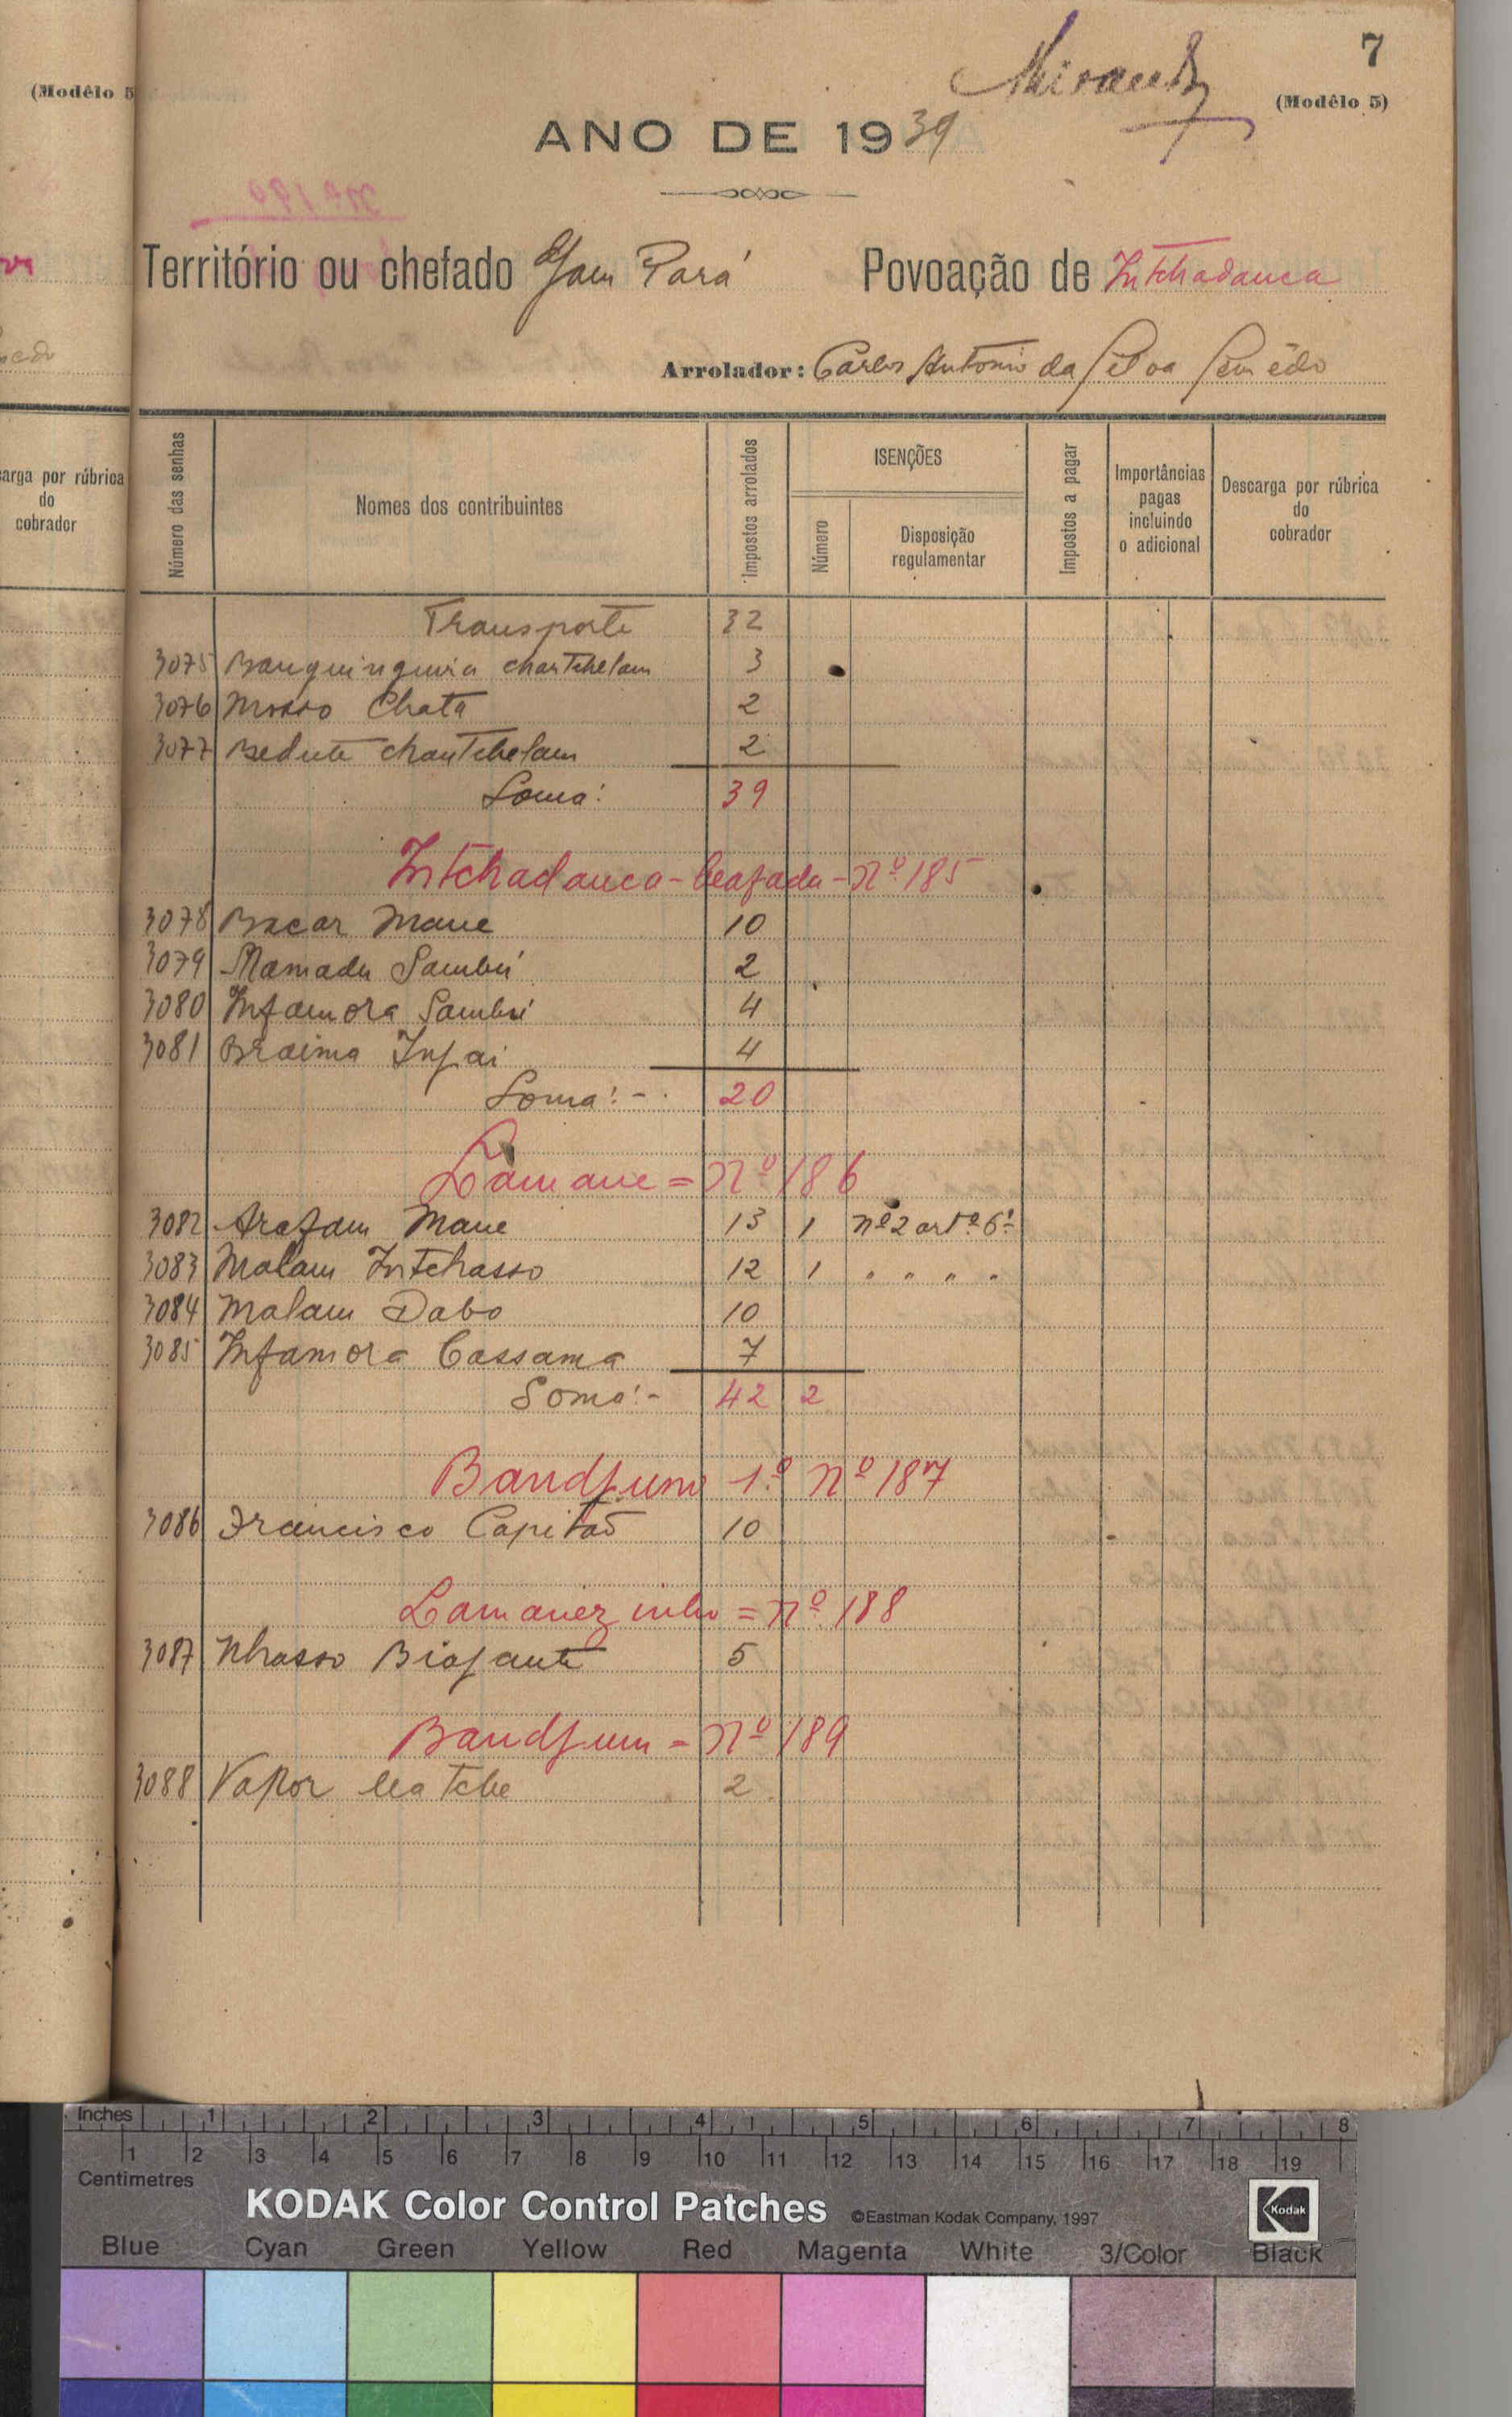 7
(Modêlo 5
Miranda
(Modêlo 5)
ANO DE 1939
Território ou chefado Gam Pará Povoação de Intchadanca
Arrolador: Carlos António da Silva Semêdo
Número das senhas
Nomes dos contribuintes
Impostos arrolados
ISENÇÕES
Número
Disposição regulamentar
Impostos a pagar
Importâncias pagas incluindo o adicional
Descarga por rúbrica do cobrador
arga por rúbrica
do
cobrador
Transporte 32
3075 Banquinquira chantchelam 3
3076 Mosso Chata 2
3077 Bedute chantchelam 2
Soma: 39
Intchadanca - beafada - Nº 185
3078 Bacar Mane 10
3079 Mamadu Sambú 2
3080 Infamora Sambú 4
3081 Braima Injai 4
Soma: - 20
Lamane = Nº 186
3082 Arafam Mane 13 1 nº 2 artº 6º
3083 Malam Intchasso 12 1 " " " "
3084 Malam Dabo 10
3085 Infamora Cassama 7
Soma: - 42 2
Bandjum 1º Nº 187
3086 Francisco Capitão 10
Lamanezinho = Nº 188
3087 Nhasso Biofante 5
Bandjum = Nº 189
3088 Vapor 2
Inches 1 2 3 4 5 6 7 8
1 2 3 4 5 6 7 8 9 10 11 12 13 14 15 16 17 18 19
Centimetres
KODAK Color Control Patches ©Eastman Kodak Company, 1997 Kodak
Blue Cyan Green Yellow Red Magenta White 3/Color Black